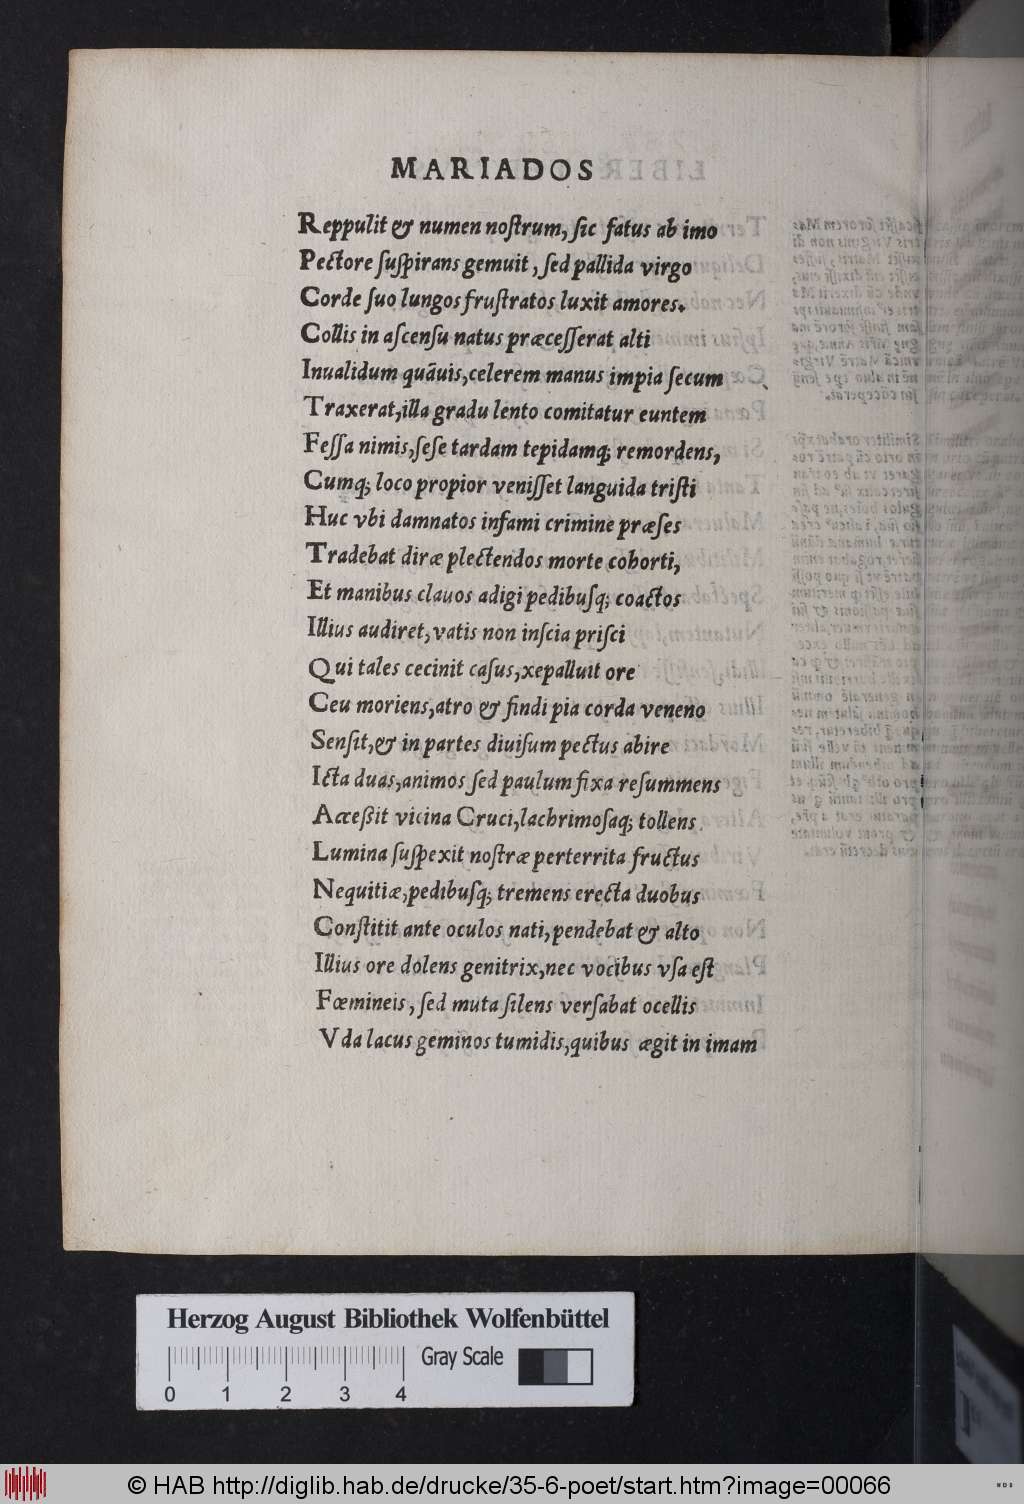 MARIADOS
Reppulit & numen nostrum, sic fatus ab imo
Pectore suspirans gemuit, sed pallida virgo
Corde suo lungos frustratos luxit amores.
Collis in ascensu natus præcesserat alti
Inualidum quãuis, celerem manus impia secum
Traxerat, illa gradu lento comitatur euntem
Fessa nimis, sese tardam tepidamq; remordens,
Cumq; loco propior venisset languida tristi
Huc vbi damnatos infami crimine præses
Tradebat diræ plectendos morte cohorti,
Et manibus clauos adigi pedibusq; coactos
Illius audiret, vatis non inscia prisci
Qui tales cecinit casus, xepalluit ore
Ceu moriens, atro & findi pia corda veneno
Sensit, & in partes diuisum pectus abire
Icta duas, animos sed paulum fixa resummens
Accessit vicina Cruci, lachrimosaq; tollens
Lumina suspexit nostræ perterrita fructus
Nequitiæ, pedibusq; tremens erecta duobus
Constitit ante oculos nati, pendebat & alto
Illius ore dolens genitrix, nec vocibus vsa est
Fœmineis, sed muta silens versabat ocellis
Vda lacus geminos tumidis, quibus ægit in imam
Herzog August Bibliothek Wolfenbüttel
Gray Scale
0 1 2 3 4
© HAB http://diglib.hab.de/drucke/35-6-poet/start.htm?image=00066